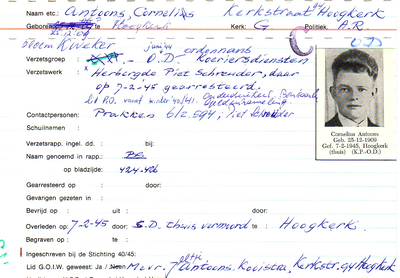 Naam etc.: Antoons, Cornelis Kerkstraat 94 Hoogkerk
Geboren Hoogkerk Kerk: G Politiek: A.R.
25-12-09 O.D.
bloem Kweker juni '44 ordonnans
Verzetsgroep: O.D. Koeriersdiensten
Verzetswerk: Herbergde Piet Schreuder, daar
op 7-2-45 gearresteerd.
Lid P.O. vanaf winter '40/'41.
Contactpersonen: Prakken blz 594; Piet Schreuder
Schuilnamen:
Verzetsrapp. ingel. dd.: bij:
Naam genoemd in rapp.:
op bladzijde: 424-426
Gearresteerd op: door:
Gevangen gezeten in:
Bevrijd op: uit: door:
Overleden op: 7-2-45 door: S.D. thuis vermoord te: Hoogkerk.
Begraven op: te:
Ingeschreven bij de Stichting 40/45:
Lid G.O.I.W. geweest: Ja / Neen Mevr. Antoons-Kooistra, Kerkstr. 94 Hoogkerk
Cornelius Antoons
Geb. 25-12-1909
Gef. 7-2-1945, Hoogkerk
(thuis) (K.P.-O.D.)